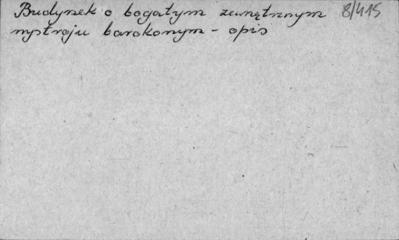 Budynek o bogatym zewnętrznym 8/415
wystroju barokowym - opis